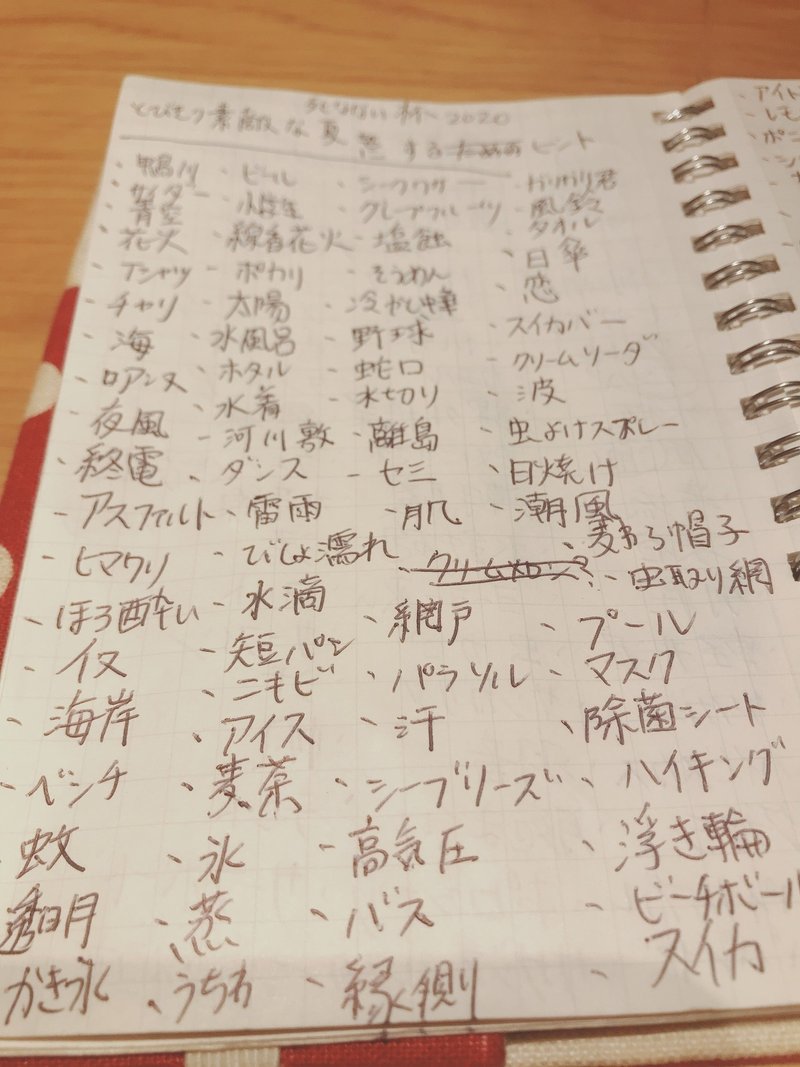 とびきり素敵な夏 死なない杯 2020
にするための ヒント
・鴨川 ・ビール ・シークワーサー ・ガリガリ君
・サイダー ・グレープフルーツ ・風鈴
・青空 ・タオル
・花火 ・線香花火 ・塩飴 ・日傘
・Tシャツ ・ポカリ ・そうめん ・恋
・チャリ ・太陽 ・冷やし中華
・海 ・水風呂 ・野球 ・スイカバー
・ロアンヌ ・ホタル ・蛇口 ・クリームソーダ
・夜風 ・水着 ・水切り ・波
・終電 ・河川敷 ・離島 ・虫よけスプレー
・ダンス ・セミ ・日焼け
・アスファルト ・雷雨 ・肌 ・潮風
・麦わら帽子
・ヒマワリ ・びしょ濡れ ・クリームメロン? ・虫取り網
・ほろ酔い ・水滴 ・網戸 ・プール
・イヌ ・短パン ・パラソル ・マスク
・ニキビ
・海岸 ・アイス ・汗 ・除菌シート
・ベンチ ・麦茶 ・シーブリーズ ・ハイキング
蚊 ・氷 ・高気圧 ・浮き輪
透明 ・蒸 ・バス ・ビーチボール
かき氷 ・うちわ ・縁側 ・スイカ
・アイ
・レモ
・ポニ